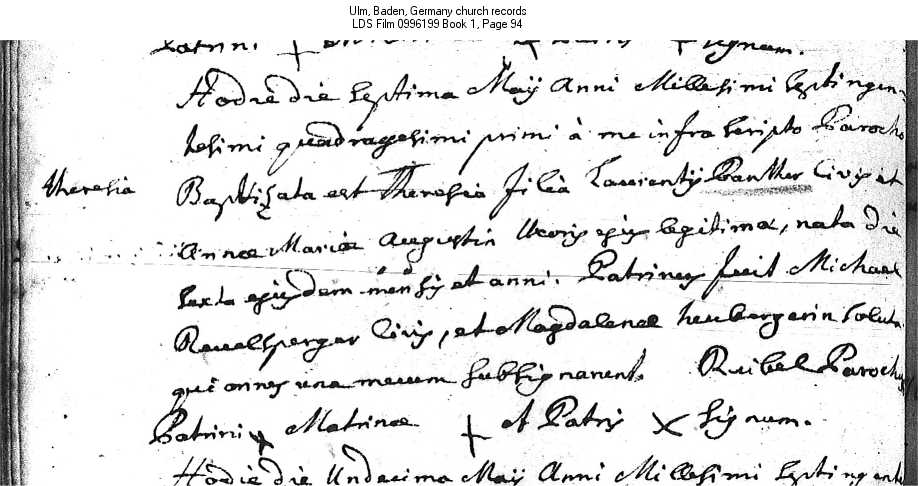 Ulm, Baden, Germany church records
LDS Film 0996199 Book 1, Page 94
Patrini + + + signum.
Hodie die septima Maÿ Anni Millesimi septingen-
tesimi quadragesimi primi à me infra scripto Parocho
Theresia
Baptizata est Theresia filia Laurentÿ Panther Civis et
Annae Mariae Augustin Uxoris ejus legitima, nata die
sexta ejusdem mensis et anni. Patrinus fuit Michael
civis, et Magdalenae heubergerin soluta
qui omnes una mecum subsignarunt. Ruibel Parochus
Patrini + Matrinae + et Patris × signum.
Hodie die Undecima Maÿ Anni Millesimi septingente